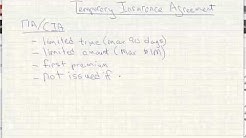 Temporary Insurance Agreement
TIA/CIA
- limited time (max 90 days)
- limited amount (max $1M)
- first premium
- not issued if